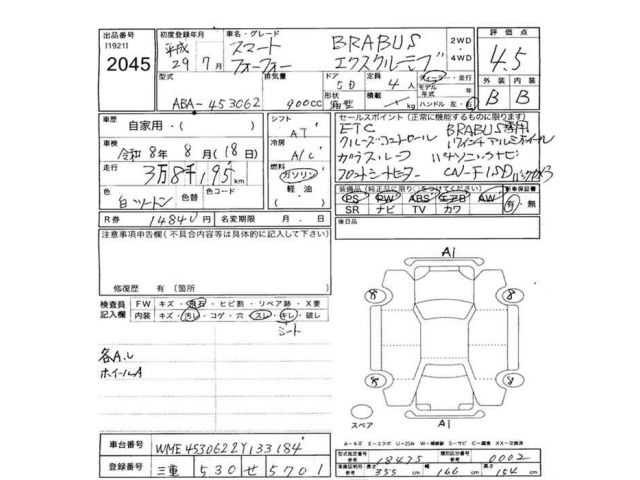 出品番号
[1921]
2045
初度登録年月
平成
29年7月
車名・グレード
スマート BRABUS
フォーフォー エクスクルーシブ
2WD
・
4WD
評価点
4.5
型式
ABA-453062
排気量
900cc
ドア
5D
形状
箱型
定員
4人
積載
kg
ディーラー・並行
モデル年式 年
ハンドル 左・右
外装 内装
B B
車歴
自家用・( )
車検
令和8年8月(18日)
走行
3万8千195km
色
白ツートン
色替
色コード
R券
1484U円
名変期限 月 . 日
シフト
AT
冷房
A/C
燃料
ガソリン
軽油
( )
セールスポイント (正常に機能するものに限ります)
ETC BRABUS専用
クルーズコントロール 17インチアルミホイール
ガラスルーフ パナソニックナビ
フロントシートヒーター CN-F1SD バックカメラ
装備品(純正品に限り○をつけてください)
PS PW ABS エアB AW
SR ナビ TV カワ
新車保証書
有・無
後日品
注意事項申告欄(不具合内容等は具体的に記入して下さい)
修復歴 有 (箇所 )
検査員記入欄
FW キズ・飛石・ヒビ割・リペア跡・X要
内装 キズ・汚レ・コゲ・穴・スレ・キレ・破レ
シート
各A.U
ホイールA
A1
8 8
8 8
A1
スペア
A-キズ E-エクボ U-凹み W-補修跡 S-サビ C-腐食 XX-交換済
車台番号
WME4530622Y133184
登録番号
三重 530 せ 5701
型式指定番号
参考
18475
類別区分番号
参考
0002
車庫証明用
参考
長さ 355 cm
幅 166 cm
高さ 154 cm